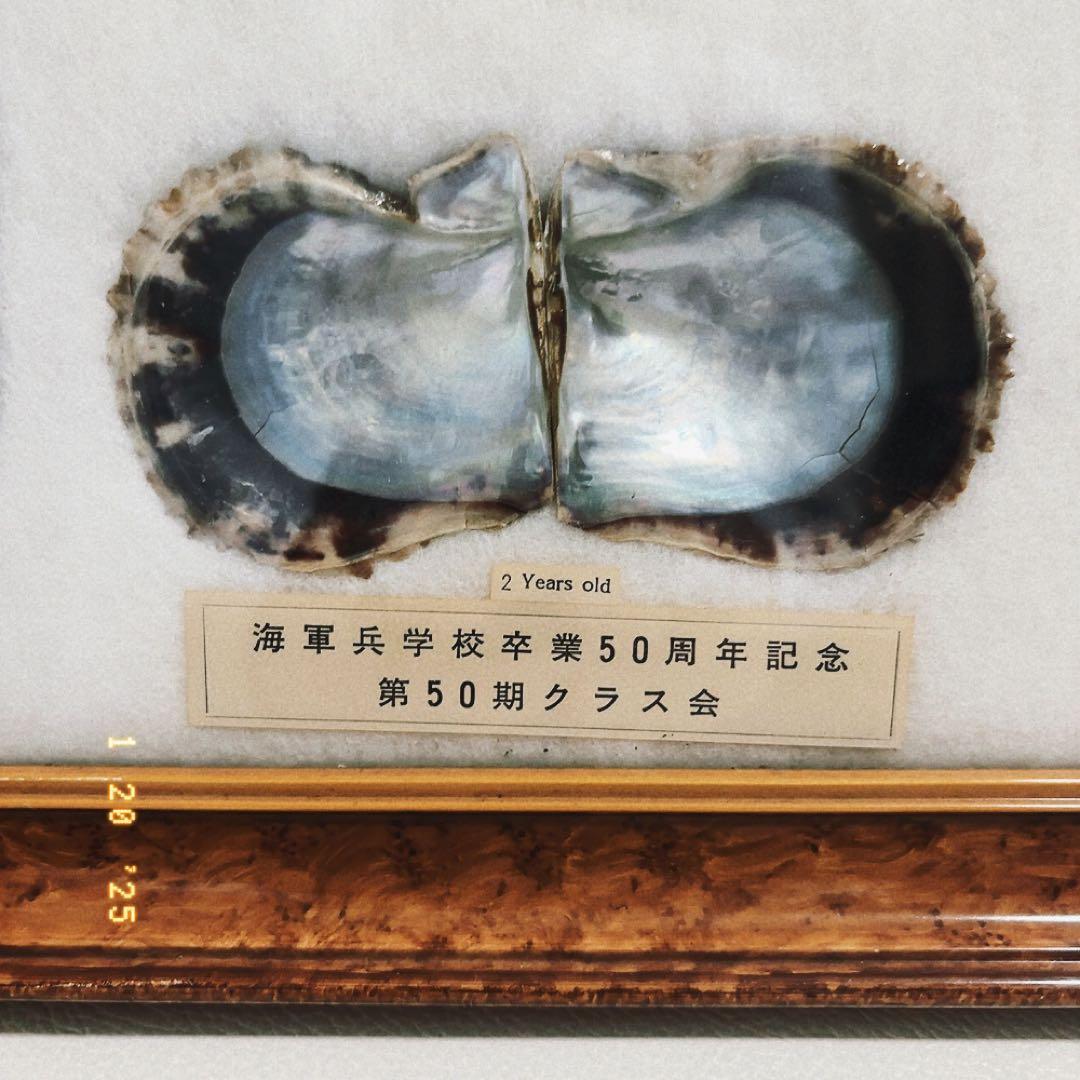 2 Years old
海軍兵学校卒業50周年記念
第50期クラス会
1 20 '25